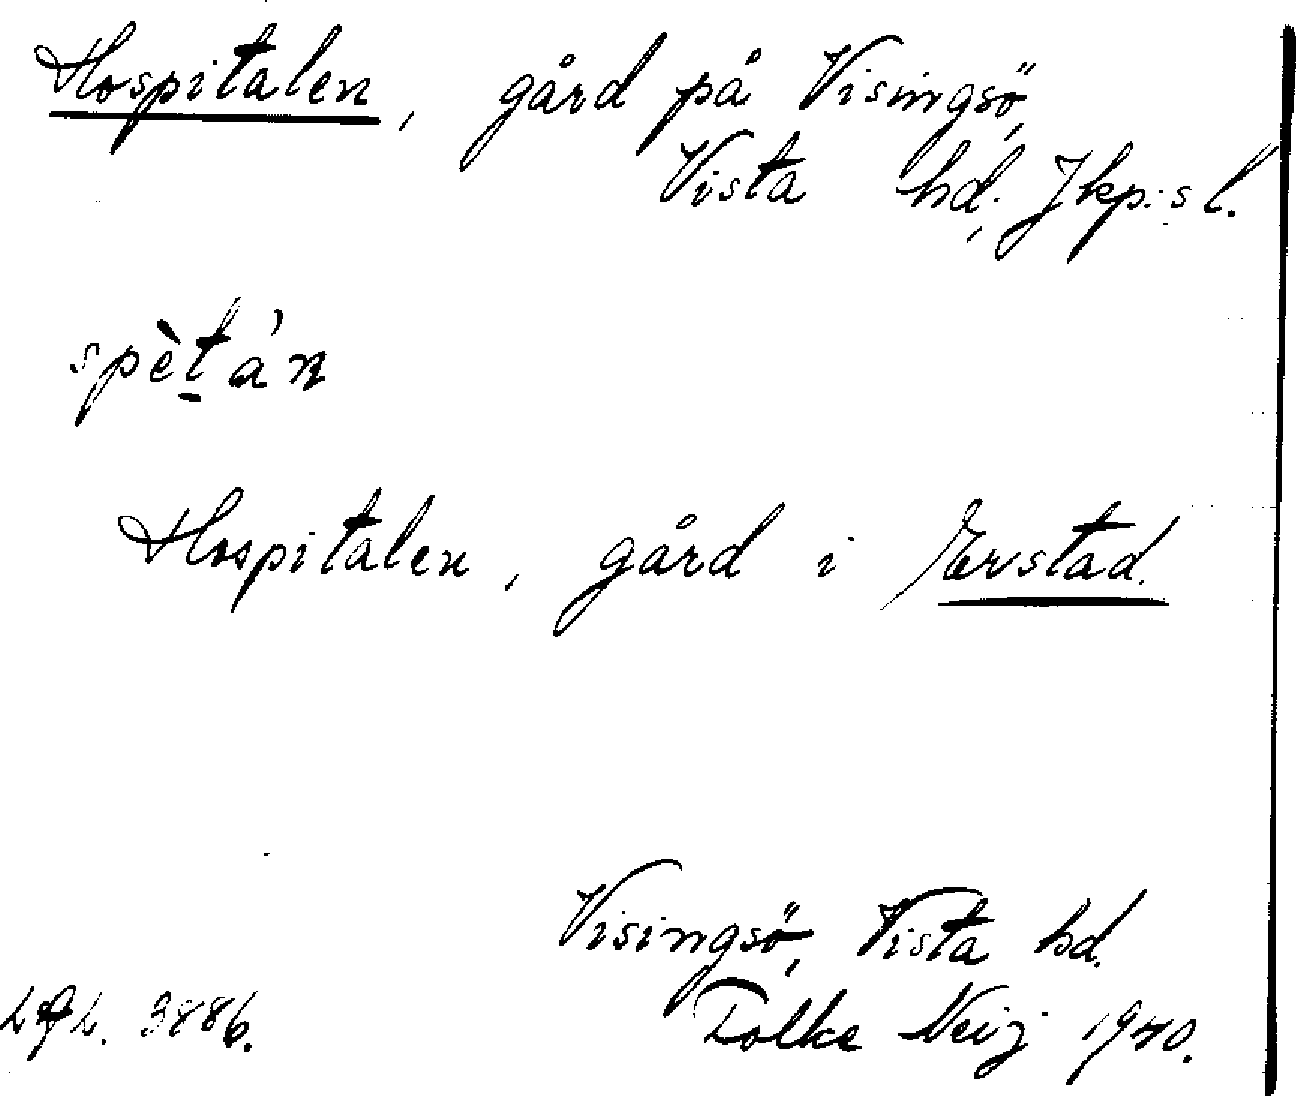 Hospitalen, gård på Visingsö,
Vista hd, Jkp:s l.
spèt̠án
Hospitalen, gård i Erstad.
Visingsö, Vista hd.
3886. Folke Neij 1940.